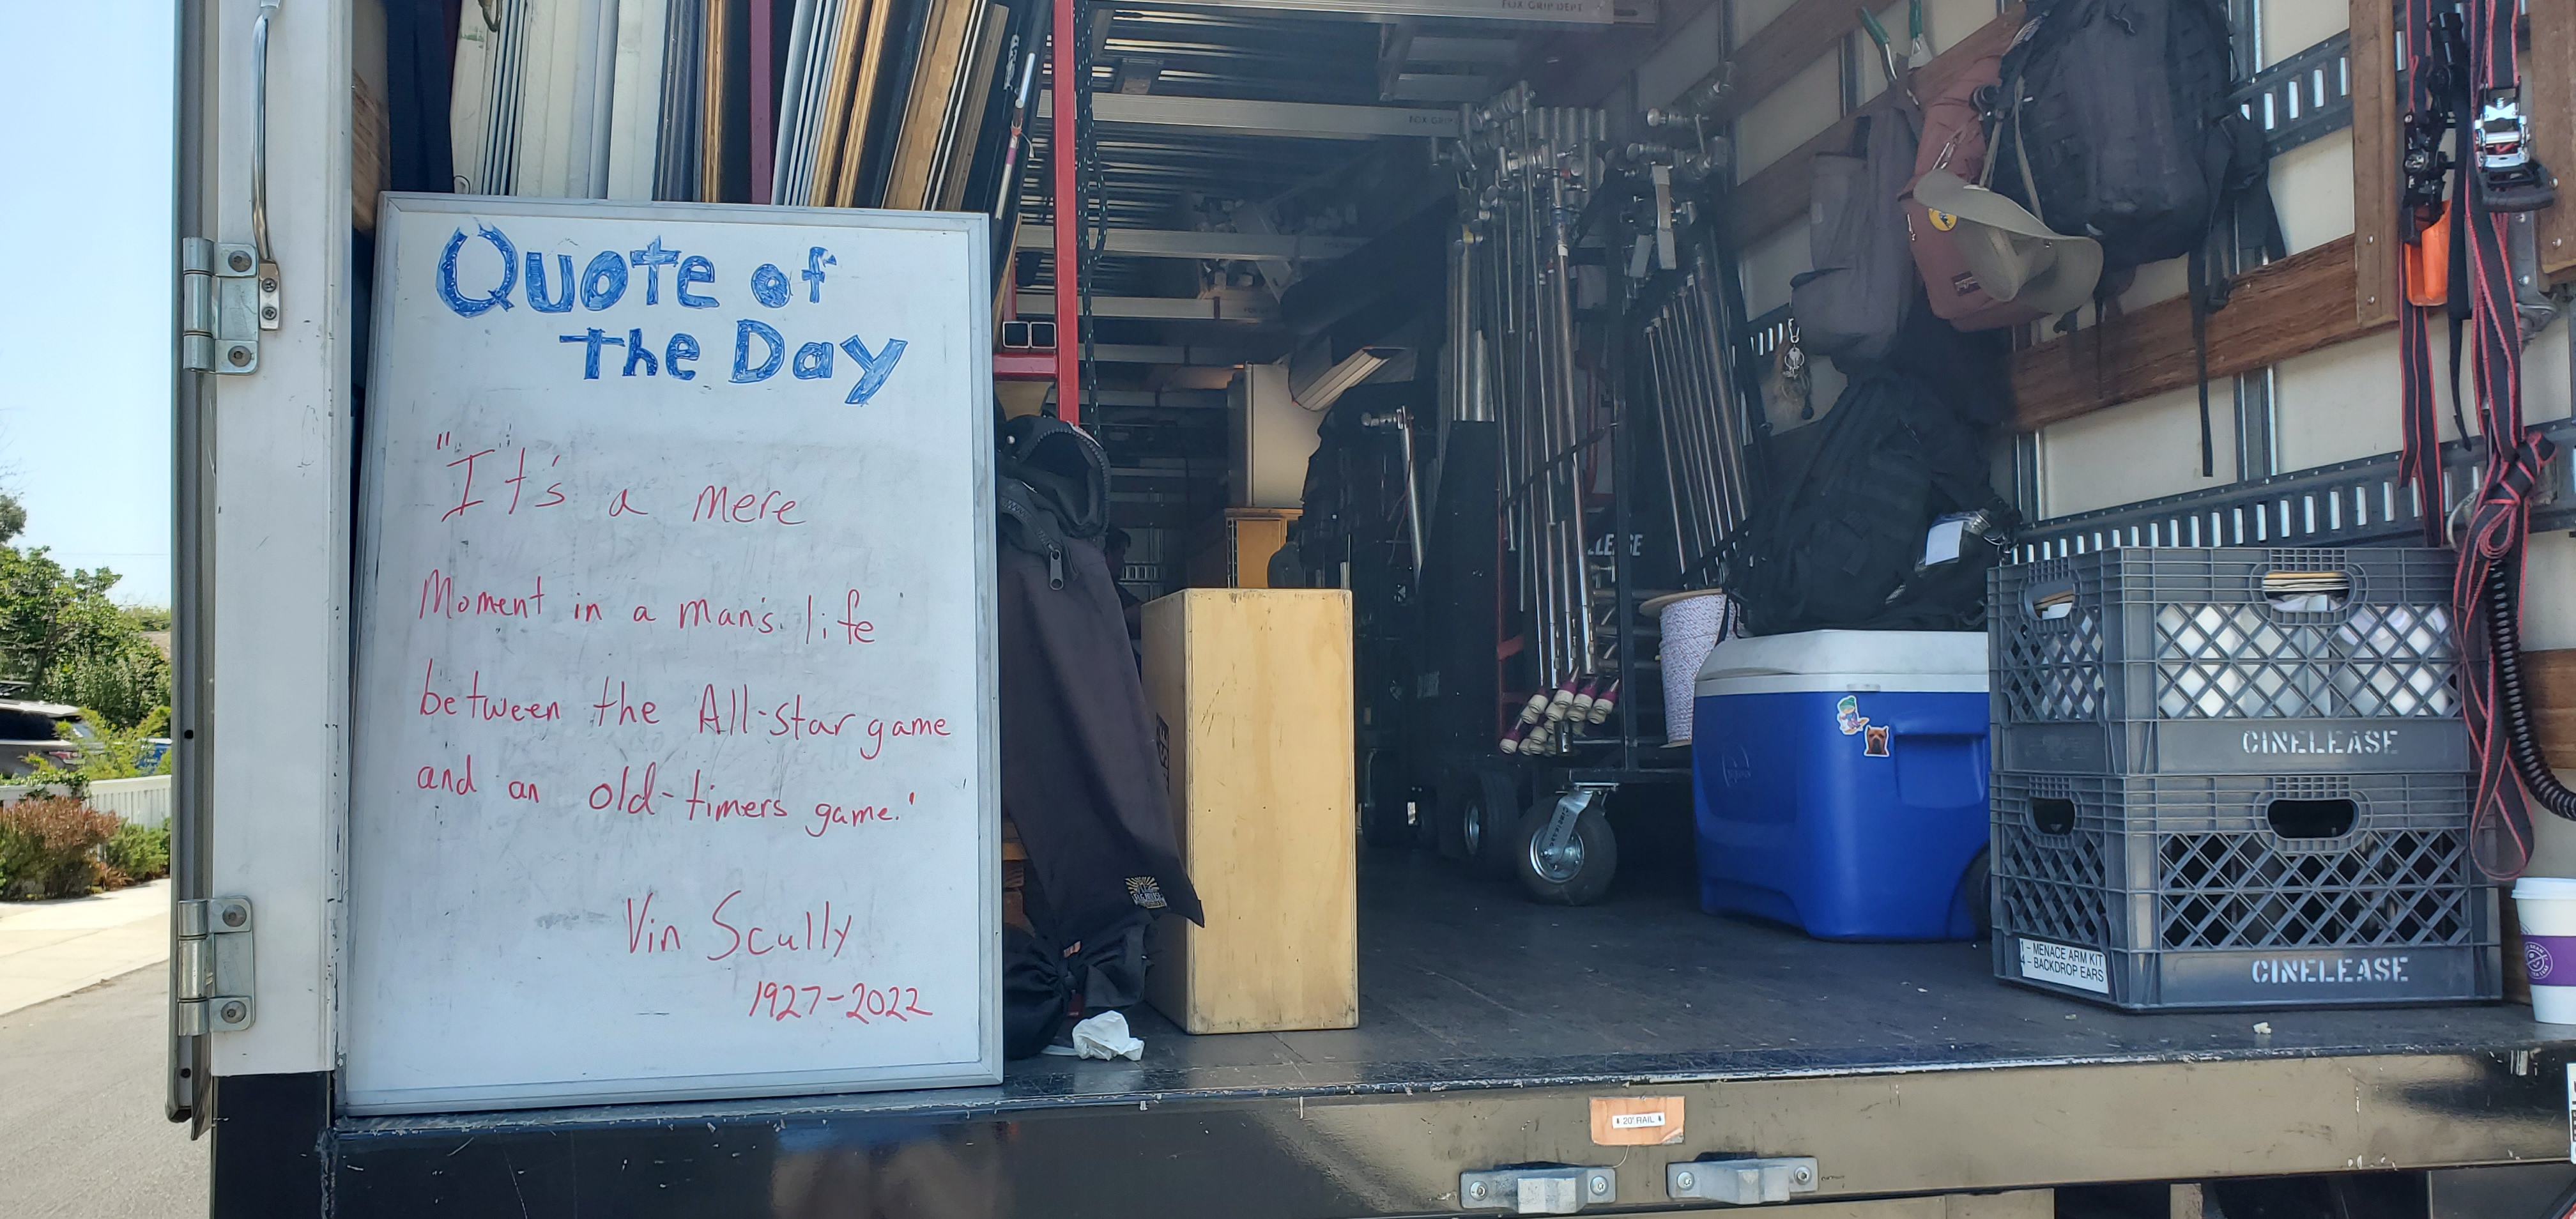 Quote of
the Day
"It's a mere
Moment in a man's life
between the All-star game
and an old-timers game."
Vin Scully
1927-2022
FOX GRIP DEPT
FOX GRIP
CINELEASE
CINELEASE
1 - MENACE ARM KIT
4 - BACKDROP EARS
20' RAIL